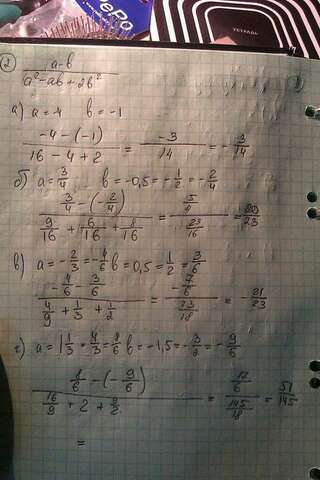 ePro
ТЕТРАДЬ
② a-b / a²-ab+2b²
а) a=-4 b=-1
-4-(-1) / 16-4+2 = -3/14 = -3/14
б) a=3/4 b=-0,5=-1/2=-2/4
3/4-(-2/4) / 9/16+6/16+8/16 = 5/4 / 23/16 = 20/23
в) a=-2/3=-4/6 b=0,5=1/2=3/6
-4/6-3/6 / 4/9+1/3+1/2 = -7/6 / 23/18 = -21/23
г) a=1 1/3=4/3=8/6 b=-1,5=-3/2=-9/6
8/6-(-9/6) / 16/9+2+9/2 = 17/6 / 145/18 = 51/145
=